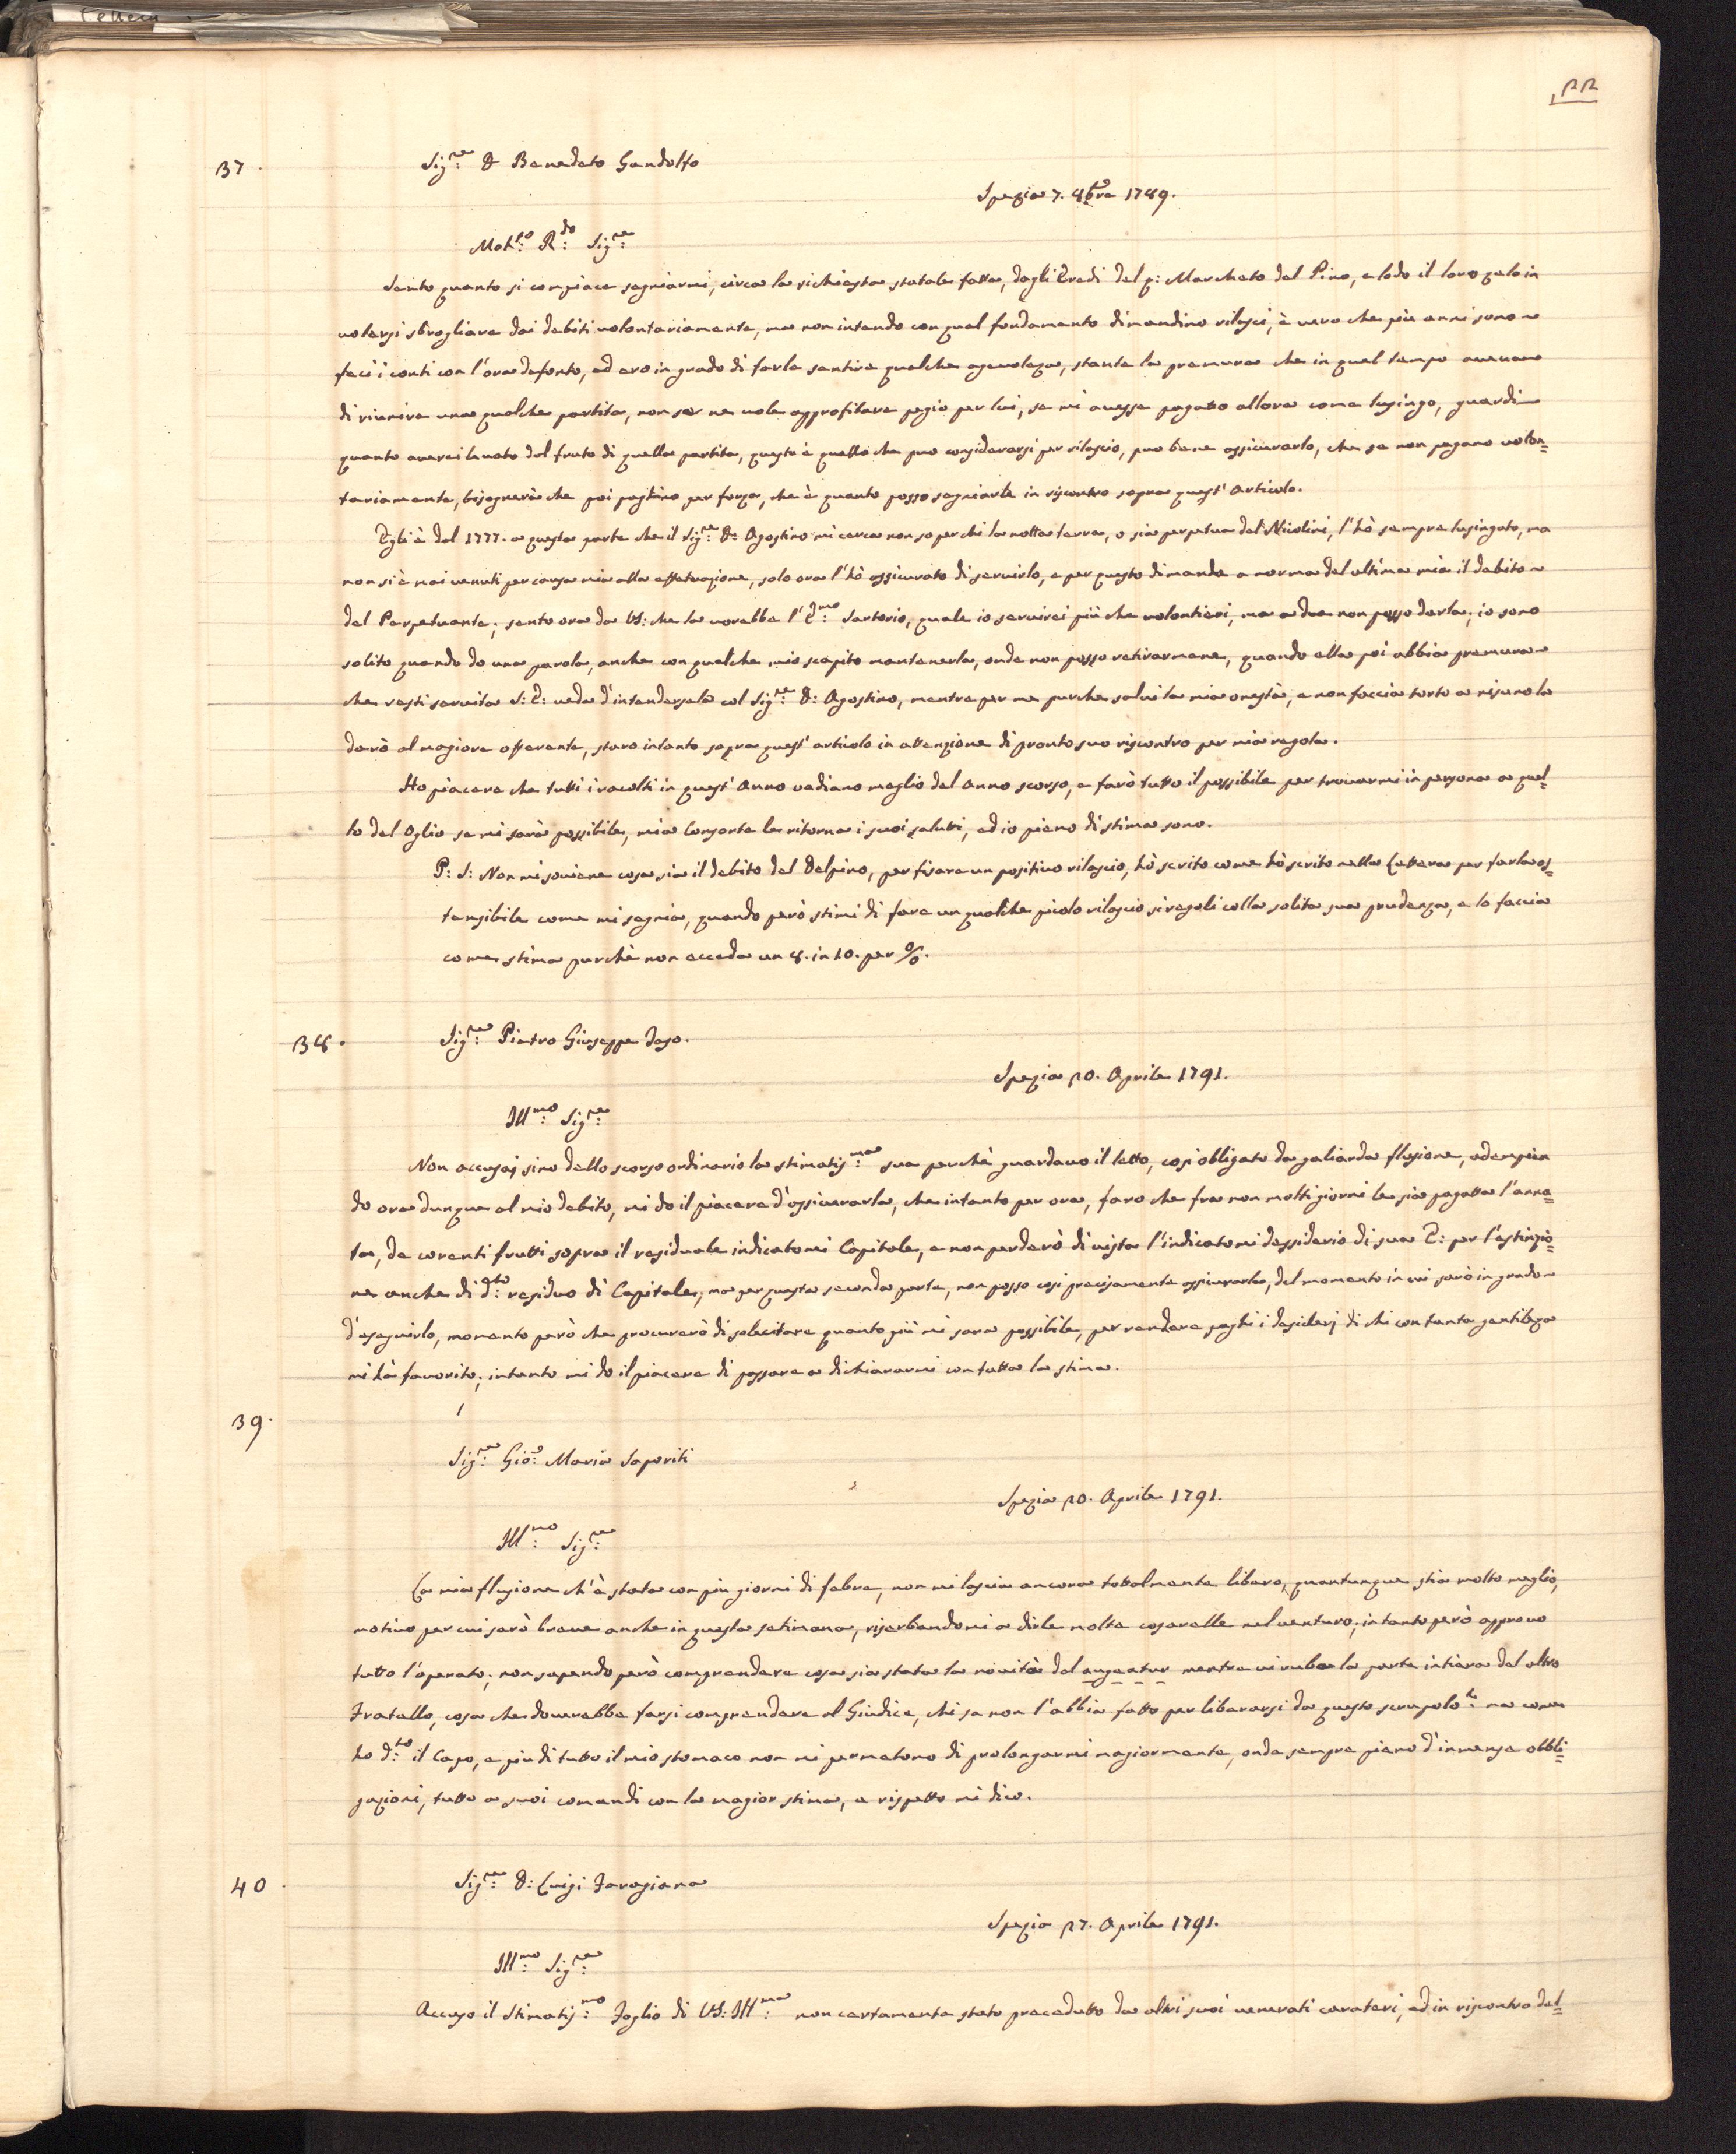 22
37.
Sig.re D Benedeto Gandolfo
Spezia 7. 8bre 1789.
Mol.to R.do Sig.re
Sento quanto si compiace segniarmi, circa la richiesta statale fatta, dagli Eredi del q: Marcheto del Pino, e lodo il loro zelo in
volersi sbrogliare dai debiti volontariamente, ma non intendo con qual fondamento dimandino rilasci, è vero che più anni sono
feci i conti con l'ora defonto, ed ero in grado di farle sentire qualche agevoleza, stante la premura che in quel tempo avevano
di riunire una qualche partita, non se ne vole approfitare pegio per lui, se mi avesse pagatto allora come lusingo, guardi
quanto averei levato dal fruto di quella partita, questo è quello che può considerarsi per rilascio, puo bene assicurarlo, che se non pagano volon=
tariamente, bisognerà che poi paghino per forza, che è quanto posso segniarle in riscontro sopra quest' articolo.
Egli è dal 1777. a questa parte che il Sig.re D: Agostino mi cerca non so per chi la notta terra, o sia perpetua del Nicolini, l'hò sempre lusingato, ma
non si è mai venuti per causa mia alla effetuazione, solo ora l'hò assicurato di servirlo, e per questo dimando a norma del ultima mià il debito
del Perpetuante; sento ora da VS: che la vorebbe l'E.mo Sartorio, quale io servirei più che volontieri, ma a due non posso darla; io sono
solito quando do una parola, anche con qualche mio scapito mantenerla, onde non posso retirarmene, quando ella poi abbia premura
che resti servita S: E: veda d'intendersela col Sig.re D: Agostino, mentre per me purche salvi la mia onestà, e non faccia torto a nisuno la
darò al magiore offerente, staro intanto sopra quest' articolo in attenzione di pronto suo riscontro per mia regola.
Ho piacere che tutti i racolti in quest' anno vadiano meglio del anno scorso, e farò tutto il possibile per trovarmi in persona a quel=
lo del oglio se mi sarà possibile, mia Consorte le ritorna i suoi salutti, ed io pieno di stima sono.
P: S: Non mi soviene cosa sia il debito del Delpino, per fisare un positivo rilascio, hò scrito come hò scrito nella Lettera per farla os=
tensibile come mi segnia, quando però stimi di fare un qualche picolo rilascio si regoli colla solita sua prudenza, e lo faccia
come stima purchè non acceda un 8. in 10. per %.
38.
Sig.re Pietro Giuseppe Jago.
Spezia 20. Aprile 1791.
Ill.mo Sig.re
Non accusai sino dello scorso ordinario la stimatis.ma sua perchè guardavo il letto, così obligato da galiarda flusione, adempien
do ora dunque al mio debito, mi do il piacere d'assicurarla, che intanto per ora, faro che fra non molti giorni le sia pagatta l'anna=
ta, de corenti frutti sopra il residuale indicatomi Capitale, e non perderò di vista l'indicatomi dessiderio di sua E: per l'estinzio=
ne anche di d.to residuo di Capitale; ma per questa seconda parte, non posso così precisamente assicurarla, del momento in cui sarò in grado
d'eseguirlo, momento però che procurerò di solecitare quanto più mi sara possibile, per rendere paghi i desiderj di chi con tanta gentileza
mi hà favorito; intanto mi do il piacere di passare a dichiararmi con tutta la stima.
39.
Sig.re Gio: Maria Saporiti
Spezia 20. Aprile 1791.
Ill.mo Sig.re
La mia flusione ch'è stata con piu giorni di febre, non mi lascia ancora tottalmente libero, quantunque stia molto meglio,
motivo per cui sarò breve anche in questa setimana, riserbandomi a dirle molte cosarelle nel venturo; intanto però approvo
tutto l'operato; non sapendo però comprendere cosa sia stata la novità del augeatur mentre vi rubea la parte intiera del altro
Fratello, cosa che doverebbe farsi comprendere al Giudice, chi sa non l'abbia fatto per liberarsi da questo scrupolo: ma come
ho d.to il Capo, e piu di tutto il mio stomaco non mi permetono di prolongarmi magiormente, onde sempre pieno d'immense obbli=
gazioni, tutto a suoi comandi con la magior stima, e rispetto mi dico.
40.
Sig.re D: Luigi Faragiana
Spezia 27. Aprile 1791.
Ill.mo Sig.re
Accuso il Stimatis.mo Foglio di VS: Ill.ma non certamente stato precedutto da altri suoi venerati carateri, ed in riscontro del=